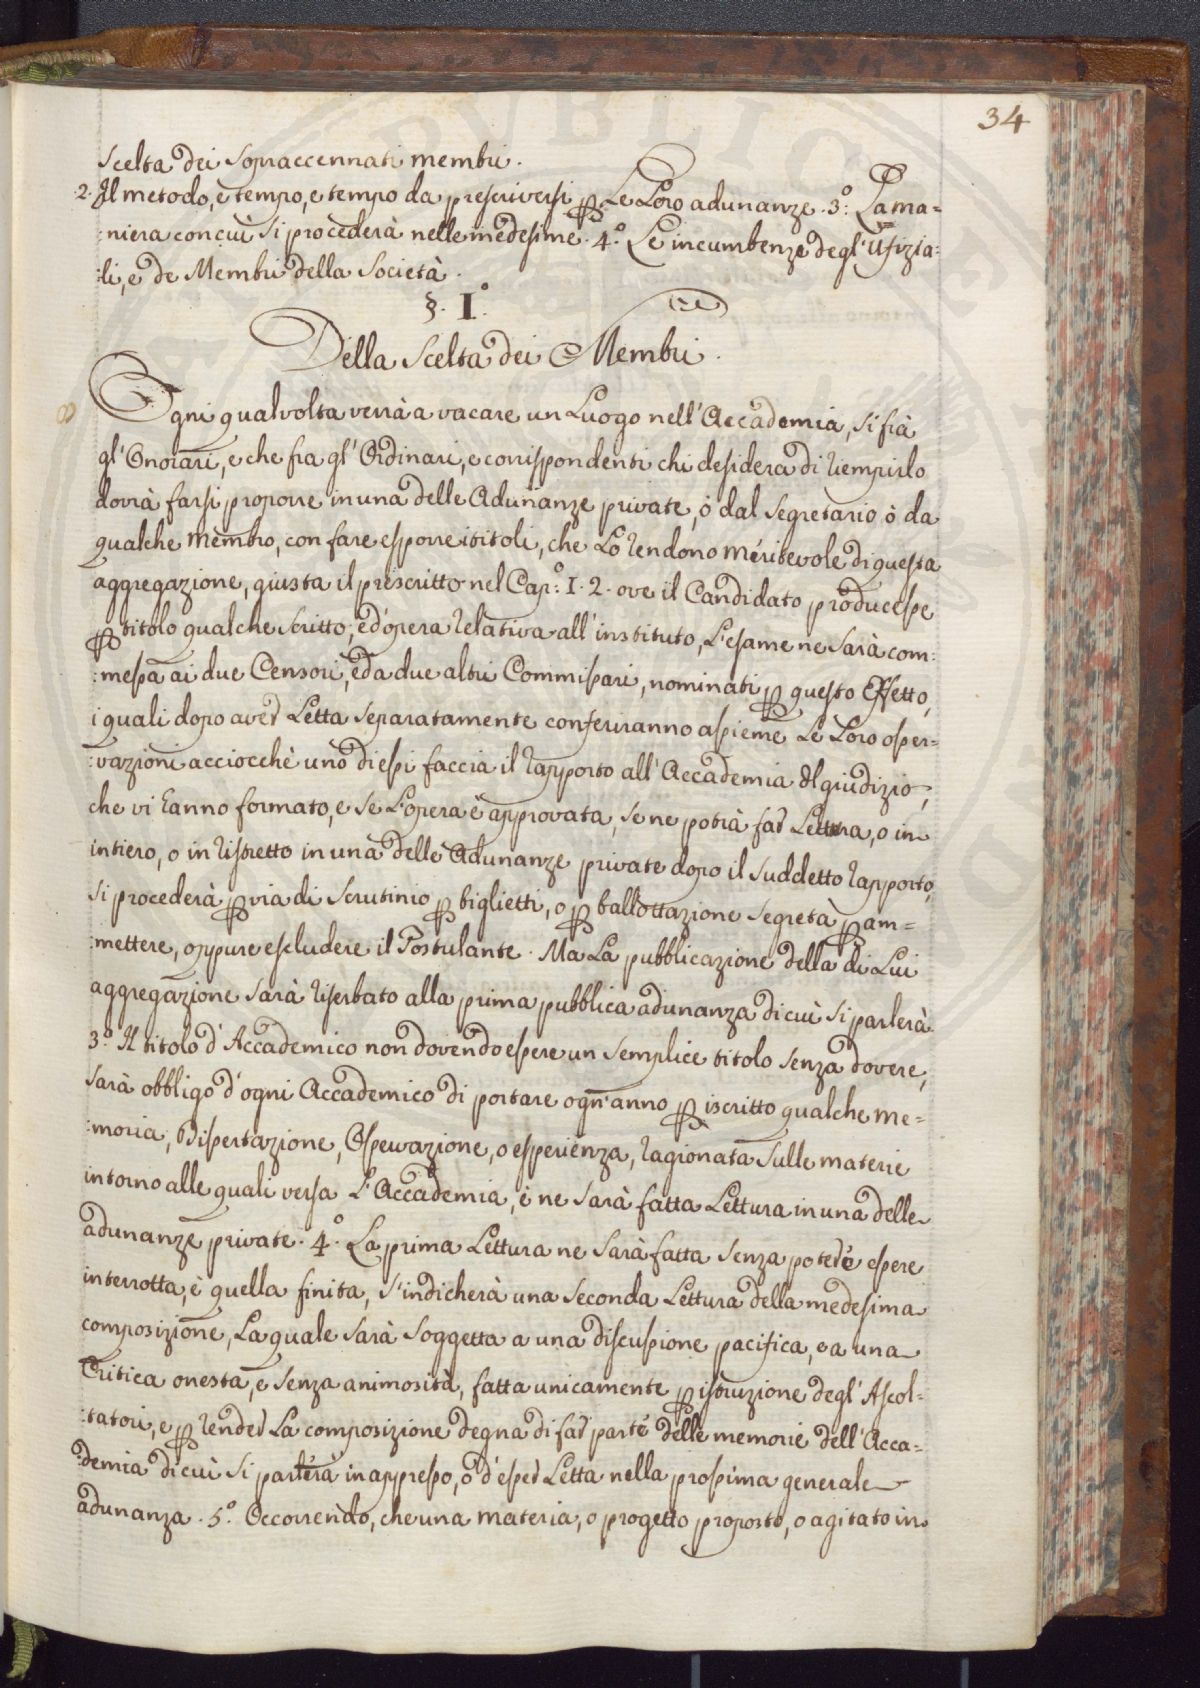 34
Scelta dei Sopraccennati membri.
2. Il metodo, e tempo, e tempo da prescriversi p Le Loro adunanze. 3.° La ma=
niera con cui si procederà nelle medesime. 4.° Le incumbenze degl' Ufizia:
:li, e de Membri della Società.
§. I.°
Della Scelta dei Membri.
Ogni qualvolta verrà a vacare un Luogo nell' Accademia, si frà
gl' Onorari, e che fra gl' Ordinari, e corrispondenti chi desidera di riempirlo
dovrà farsi proporre in una delle Adunanze private, ò dal Segretario ò da
qualche membro, con fare esporre i titoli, che Lo rendono méritevole di questa
aggregazione, giusta il prescritto nel Cap.° I. 2. ove il Candidato producesse
p titolo qualche Scritto, ed'opera relativa all' instituto, L'esame ne Sarà com:
:messa ai due Censori, ed a due altri Commissari, nominati p questo Effetto,
i quali dopo aver Letta Separatamente conferiranno assieme Le Loro osser=
:vazioni acciocchè uno di essi faccia il rapporto all' Accademia del giudizio,
che vi hanno formato, e se L'opera è approvata, se ne potrà far Lettura, o in
intiero, o in ristretto in una delle Adunanze private dopo il Suddetto rapporto,
Si procederà p via di Scrutinio p biglietti, o p ballottazione Segreta p am=
:mettere, oppure escludere il Postulante. Ma La pubblicazione della di Lui
aggregazione Sarà riserbato alla prima pubblica adunanza di cui Si parlerà.
3.° Il titolo d' Accademico non dovendo essere un Semplice titolo Senza dovere,
Sarà obbligo d'ogni Accademico di portare ogn' anno p iscritto qualche me=
:moria, Dissertazione, Osservazione, o esperienza, ragionata Sulle materie
intorno alle quali versa L'Accademia, è ne Sarà fatta Lettura in una delle
adunanze private. 4.° La prima Lettura ne Sarà fatta Senza poter' essere
interrotta, è quella finita, S'indicherà una Seconda Lettura della medesima
composizione, La quale Sarà Soggetta a una discussione pacifica, e a una
Critica onesta, e Senza animosità, fatta unicamente p istruzione degl' Ascol=
:tatori, e p render La composizione degna di far parte delle memorie dell' Acca=
:demia di cui Si parlerà in appresso, ò d'esser Letta nella prossima generale
adunanza. 5.° Occorrendo, che una materia, o progetto proposto, o agitato in